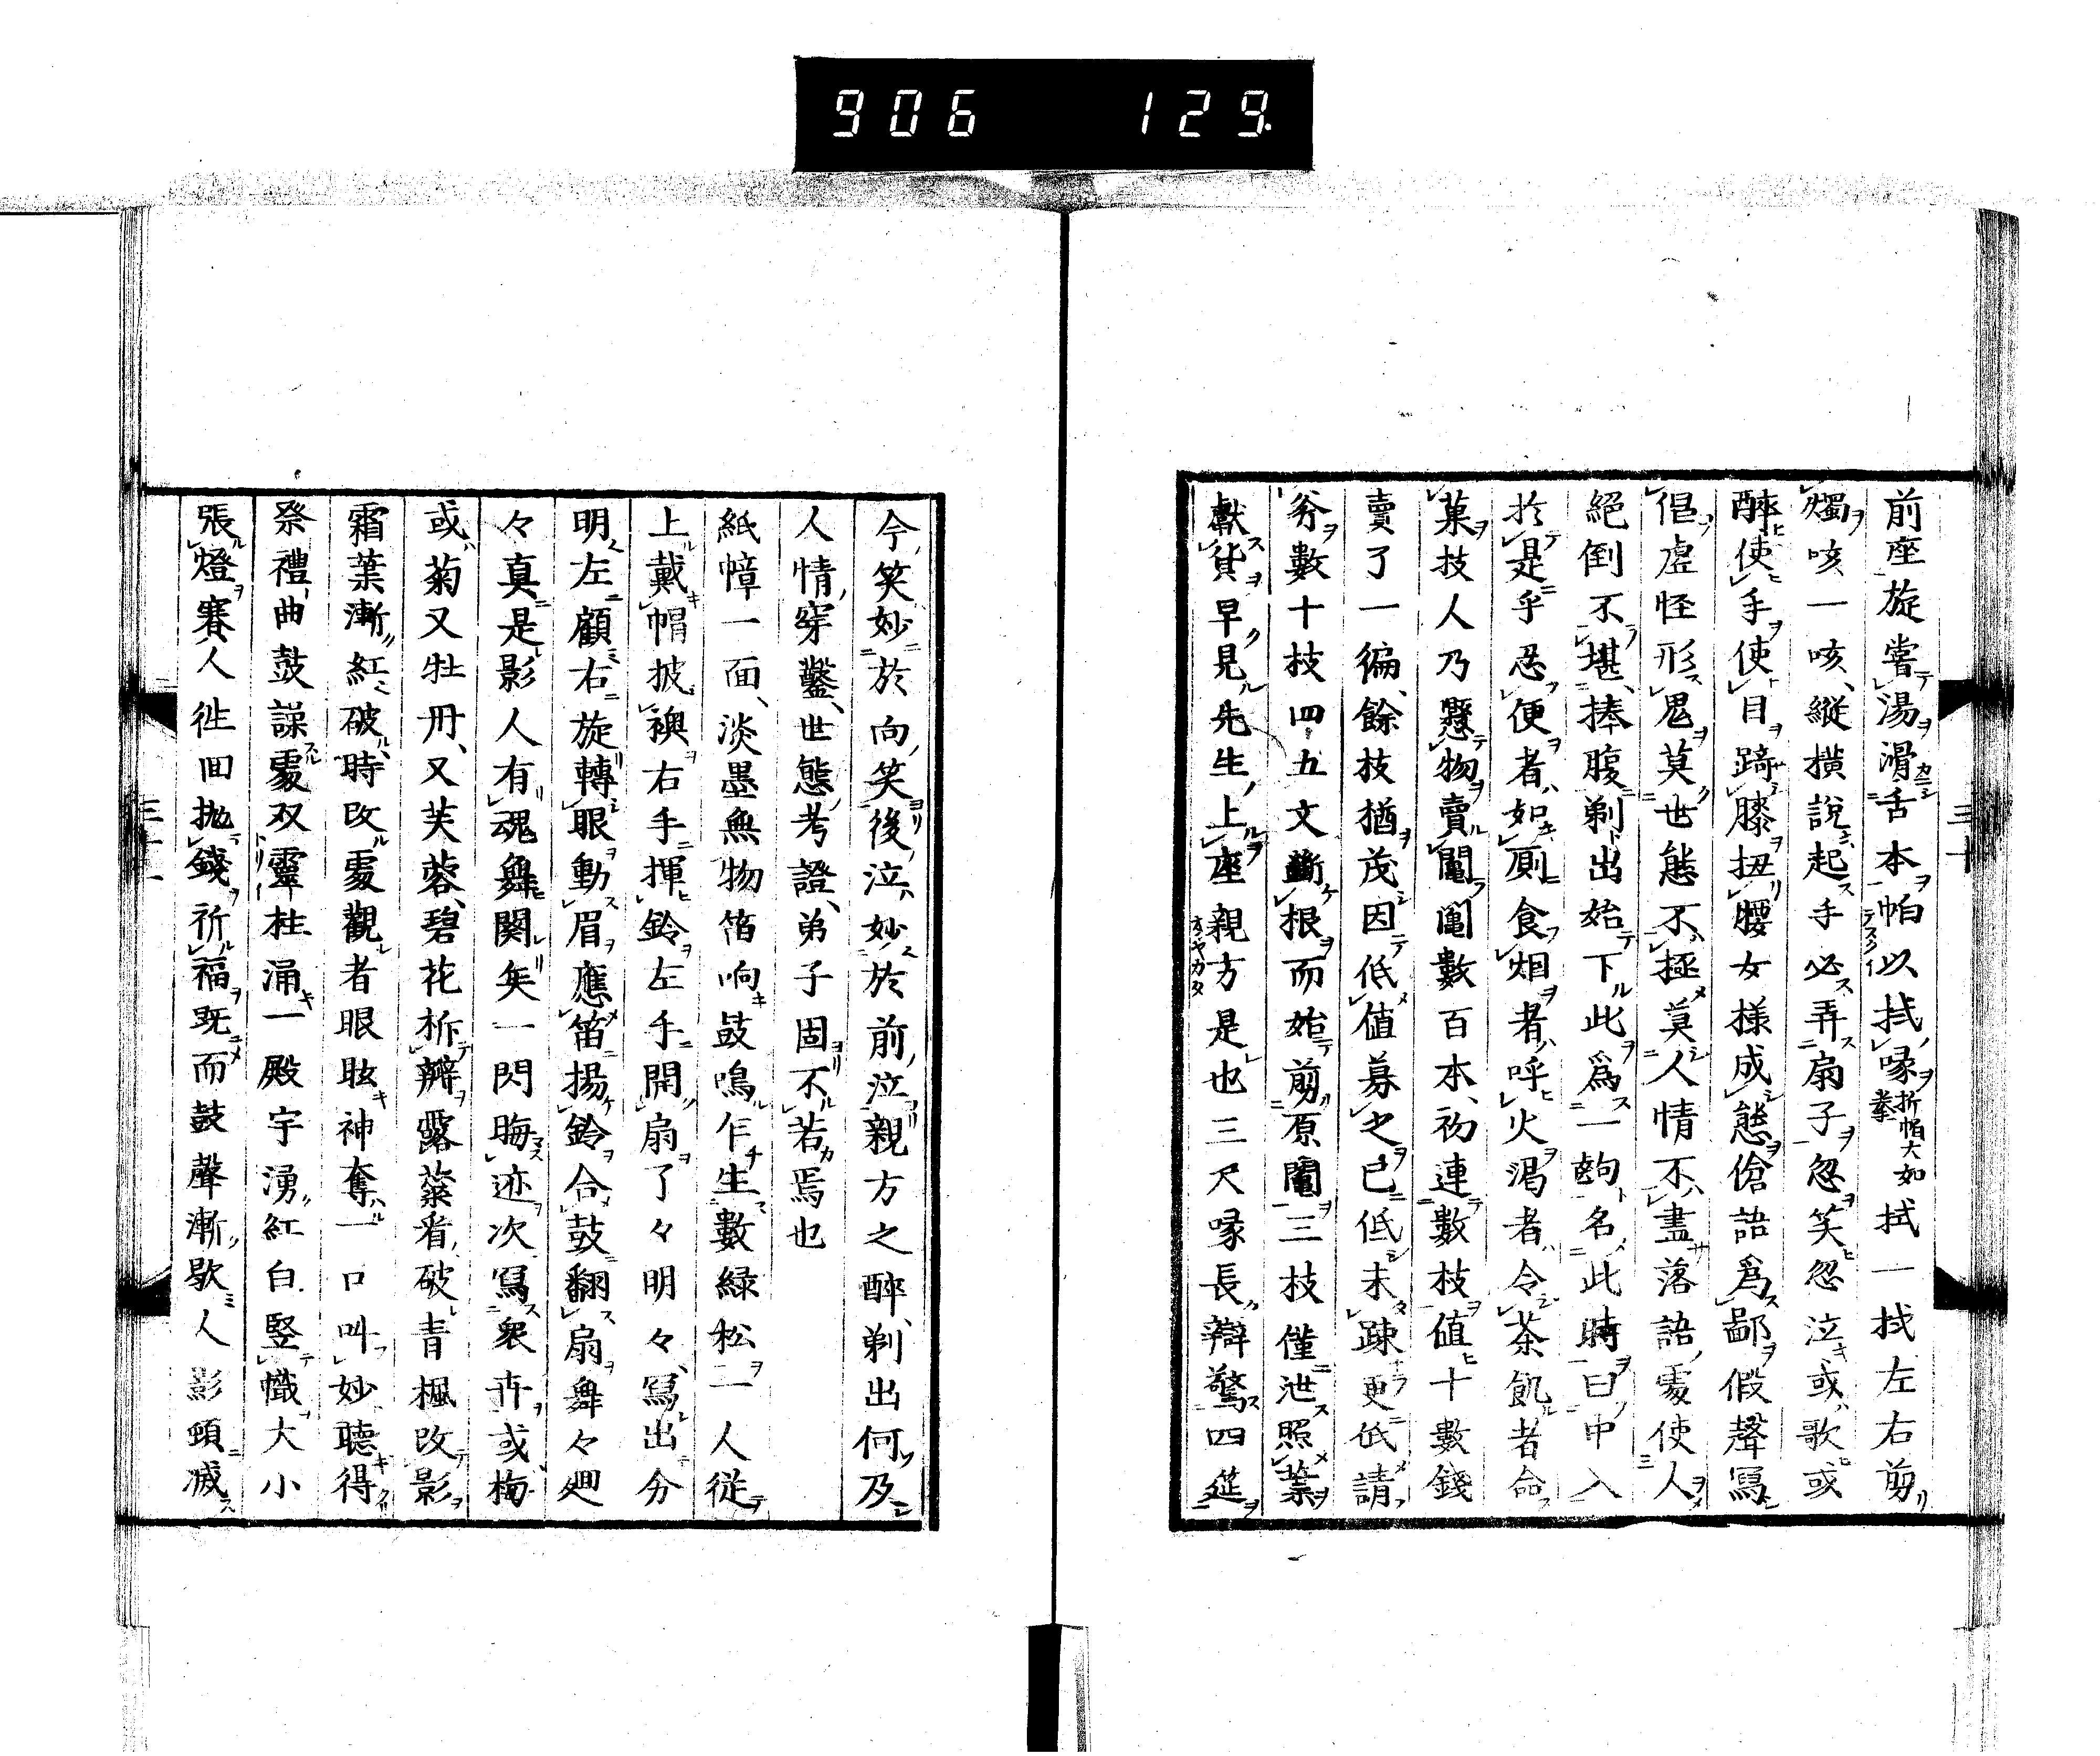 906 129
前座旋嘗湯滑舌本帕以拭喙折帕大如拳拭一拭左右剪
燭咳一咳縱橫說起手必弄扇子忽笑忽泣或歌或
醉使手使目踦膝扭腰女樣成態傖語爲鄙假聲寫
倡虛怪形鬼莫世態不極莫人情不盡落語處使人
絕倒不堪捧腹剃出始下此爲一齣名此時曰中入
於是乎忍便者如厠食烟者呼火渴者令茶飢者命
菓技人乃懸物賣鬮鬮數百本初連數枝值十數錢
賣了一徧餘枝猶茂因低值募之已低未疎更低請
劵數十枝四五文斷根而始剪原鬮三枝僅泄照葉
獻貨早見先生上座親方是也三尺喙長辯驚四筵
三十
今笑妙於向笑後泣妙於前泣親方之醉剃出何及
人情穿鑿世態考證弟子固不若焉也
紙幛一面淡墨無物笛响鼓鳴乍生數緑松一人從
上戴帽披襖右手揮鈴左手開扇了々明々寫出分
明左顧右旋轉眼動眉應笛揚鈴合鼓翻扇舞々𢌞
々真是影人有魂舞闋矣一閃晦迹次寫衆卉或梅
或菊又牡丹又芙蓉碧花拆辨露蘂看破青楓改影
霜葉漸紅破時改處觀者眼眩神奪一口叫妙聽得
祭禮曲鼓譟處双靈柱涌一殿宇湧紅白竪幟大小
張燈賽人徃回抛錢祈福既而鼓聲漸歇人影頭减
三十一